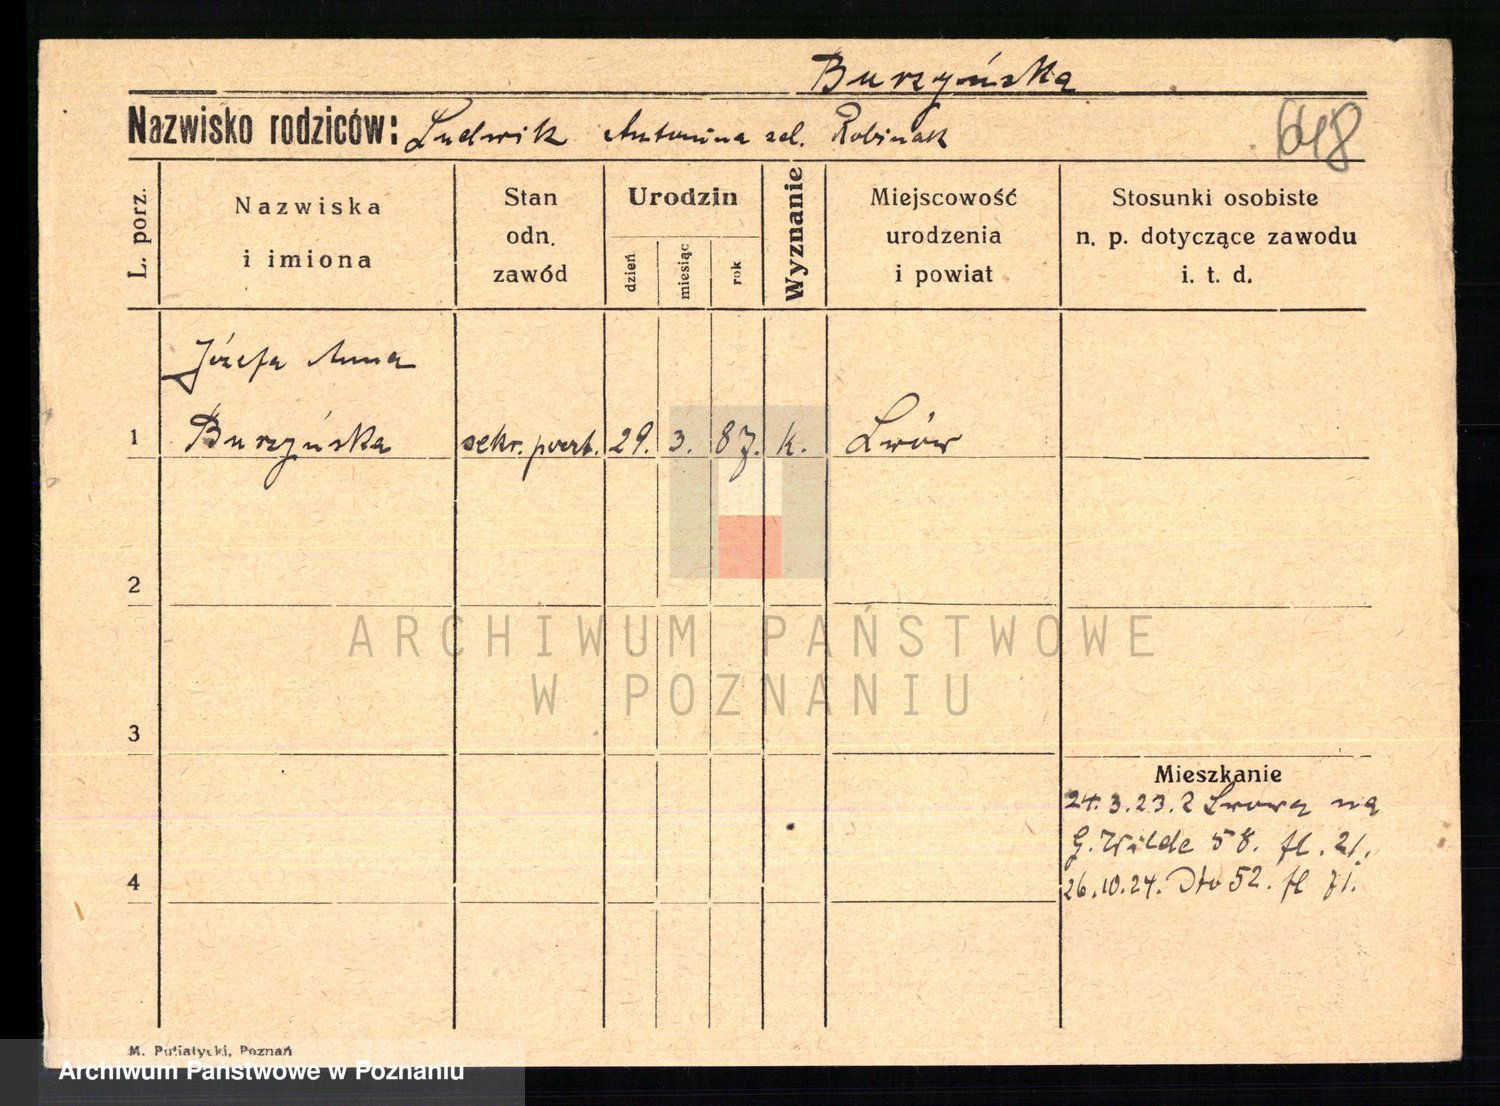 Burzyńska
Nazwisko rodziców: Ludwik Antonina Robinak
648
L. porz.
Nazwiska
i imiona
Stan
odn.
zawód
Urodzin
dzień
miesiąc
rok
Wyznanie
Miejscowość
urodzenia
i powiat
Stosunki osobiste
n. p. dotyczące zawodu
i. t. d.
Józefa Anna
1 Burzyńska sekr. poczt. 29. 3. 87. k. Lwów
2
3
4
Mieszkanie
24.3.23. z Lwowa na
G. Wilde 58. fl. 21.
26.10.24. Dto 52. fl 71.
ARCHIWUM PAŃSTWOWE
W POZNANIU
M. Putiatycki, Poznań
Archiwum Państwowe w Poznaniu